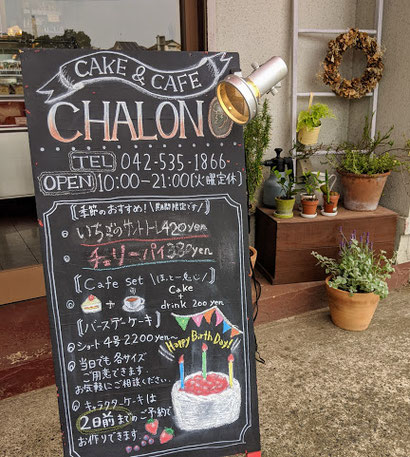 CAKE & CAFE
CHALON
TEL 042-535-1866
OPEN 10:00-21:00(火曜定休)
季節のおすすめ! \期間限定です/
いちごのサントノーレ 420yen
チェリーパイ 380yen
Cafe Set \ほっと一息に/
+ Cake + drink 200yen
【バースデーケーキ】
ショート4号 2200yen~
当日でも各サイズ
ご用意できます。
お気軽にご相談ください。
キャラクターケーキは
2日前までのご予約で
お作りできます。
Happy Birth Day!